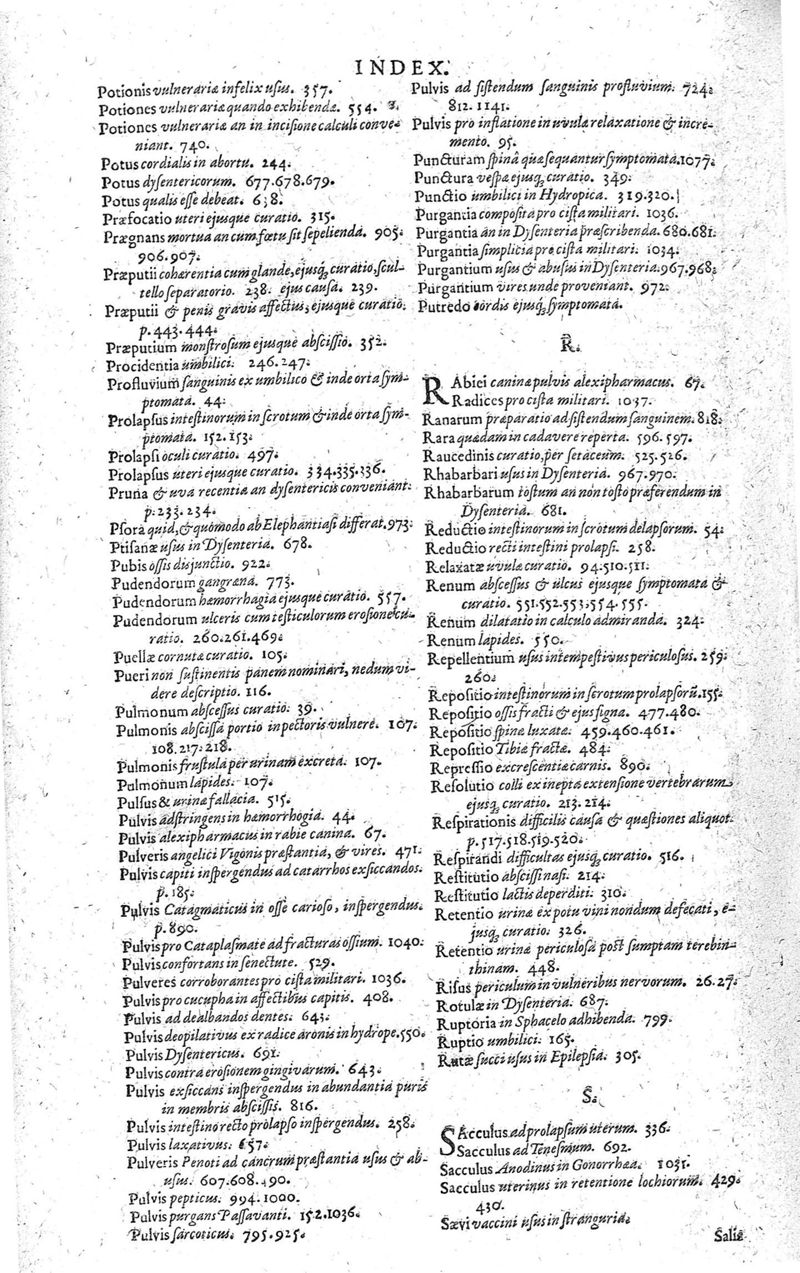 INDEX.
Potionis vulneraria infelix usus. 357.
Potiones vulneraria quando exhibenda. 554.
Potiones vulneraria an in incisione calculi conve-
niant. 740.
Potus cordialis in abortu. 244.
Potus dysentericorum. 677.678.679.
Potus qualis esse debeat. 638.
Præfocatio uteri ejusque curatio. 315.
Prægnans mortua an cum fœtu sit sepelienda. 905.
906.907.
Præputii coharentia cum glande, ejusq; curatio, scul-
tello separatorio. 238. ejus causa. 239.
Præputii & penis gravis affectus, ejusque curatio.
p.443.444.
Præputium monstrosum ejusque abscissio. 352.
Procidentia umbilici. 246.247.
Profluvium sanguinis ex umbilico & inde orta sym-
ptomata. 44.
Prolapsus intestinorum in scrotum & inde orta sym-
ptomata. 152.153.
Prolapsi oculi curatio. 497.
Prolapsus uteri ejusque curatio. 334.335.336.
Pruna & uva recentia an dysentericis conveniant.
p.233.234.
Psora quid, & quomodo ab Elephantiasi differat. 973.
Ptisanæ usus in Dysenteria. 678.
Pubis ossis disjunctio. 922.
Pudendorum gangrana. 773.
Pudendorum hæmorrhagia ejusque curatio. 357.
Pudendorum ulceris cum testiculorum erosione cu-
ratio. 260.261.469.
Puellæ cornuta curatio. 105.
Pueri non sustinentis panem nominari, nedum vi-
dere descriptio. 116.
Pulmonum abscessus curatio. 39.
Pulmonis abscissa portio in pectoris vulnere. 107.
108.217.218.
Pulmonis frustula per urinam excreta. 107.
Pulmonum lapides. 107.
Pulsus & urina fallacia. 515.
Pulvis adstringens in hæmorrhogia. 44.
Pulvis alexipharmacus in rabie canina. 67.
Pulveris angelici Vigonis præstantia, & vires. 471.
Pulvis capiti inspergendus ad catarrhos exsiccandos.
p.185.
Pulvis Catagmaticus in osse carioso, inspergendus.
p.890.
Pulvis pro Cataplasmate ad fracturas ossium. 1040.
Pulvis confortans in senectute. 529.
Pulveres corroborantes pro cista militari. 1036.
Pulvis pro cucupha in affectibus capitis. 408.
Pulvis ad dealbandos dentes. 643.
Pulvis deopilativus ex radice aronis in hydrope. 550.
Pulvis Dysentericus. 691.
Pulvis contra erosionem gingivarum. 643.
Pulvis exsiccans inspergendus in abundantia puris
in membris abscissis. 816.
Pulvis intestino recto prolapso inspergendus. 258.
Pulvis laxativus. 657.
Pulveris Penoti ad cancrum præstantia usus & ab-
usus. 607.608.490.
Pulvis pepticus. 994.1000.
Pulvis purgans Passavanti. 152.1036.
Pulvis sarcoticus. 795.925.
Pulvis ad sistendum sanguinis profluvium. 724.
812.1141.
Pulvis pro inflatione in uvula relaxatione & incre-
mento. 95.
Puncturam spinâ quæ sequantur symptomata. 1077.
Punctura vespæ ejusq; curatio. 349.
Punctio umbilici in Hydropica. 319.320.
Purgantia composita pro cista militari. 1036.
Purgantia an in Dysenteria præscribenda. 680.681.
Purgantia simplicia pro cista militari. 1034.
Purgantium usus & abusus in Dysenteria. 967.968.
Purgantium vires unde proveniant. 972.
Putredo sordis ejusq; symptomata.
R.
RAbiei canina pulvis alexipharmacus. 67.
Radices pro cista militari. 1037.
Ranarum præparatio ad sistendum sanguinem. 818.
Rara quædam in cadavere reperta. 596.597.
Raucedinis curatio, per setaceum. 525.526.
Rhabarbari usus in Dysenteria. 967.970.
Rhabarbarum tostum an non tosto præferendum in
Dysenteria. 681.
Reductio intestinorum in scrotum delapsorum. 54.
Reductio recti intestini prolapsi. 258.
Relaxatæ uvula curatio. 94.510.511.
Renum abscessus & ulcus ejusque symptomata &
curatio. 551.552.553.554.555.
Renum dilatatio in calculo admiranda. 324.
Renum lapides. 550.
Repellentium usus intempestivus periculosus. 259.
260.
Repositio intestinorum in scrotum prolapsorũ. 155.
Repositio ossis fracti & ejus signa. 477.480.
Repositio spina luxata. 459.460.461.
Repositio Tibia fracta. 484.
Repressio excrescentia carnis. 890.
Resolutio colli ex inepta extensione vertebrarum.
ejusq; curatio. 213.214.
Respirationis difficilis causa & quæstiones aliquot.
p.517.518.519.520.
Respirandi difficultas ejusq; curatio. 516.
Restitutio abscissi nasi. 214.
Restitutio lactis deperditi. 310.
Retentio urinæ ex potu vini nondum defecati, e-
jusq; curatio. 326.
Retentio urinæ periculosa post sumptam terebin-
thinam. 448.
Risus periculum in vulneribus nervorum. 26.27.
Rotulæ in Dysenteria. 687.
Ruptoria in Sphacelo adhibenda. 799.
Ruptio umbilici. 165.
Rutæ succi usus in Epilepsia. 305.
S.
SAcculus ad prolapsum uterum. 336.
Sacculus ad Tenesmum. 692.
Sacculus Anodinus in Gonorrhæa. 1031.
Sacculus uterinus in retentione lochiorum. 429.
430.
Sævi vaccini usus in stranguria.
Salis